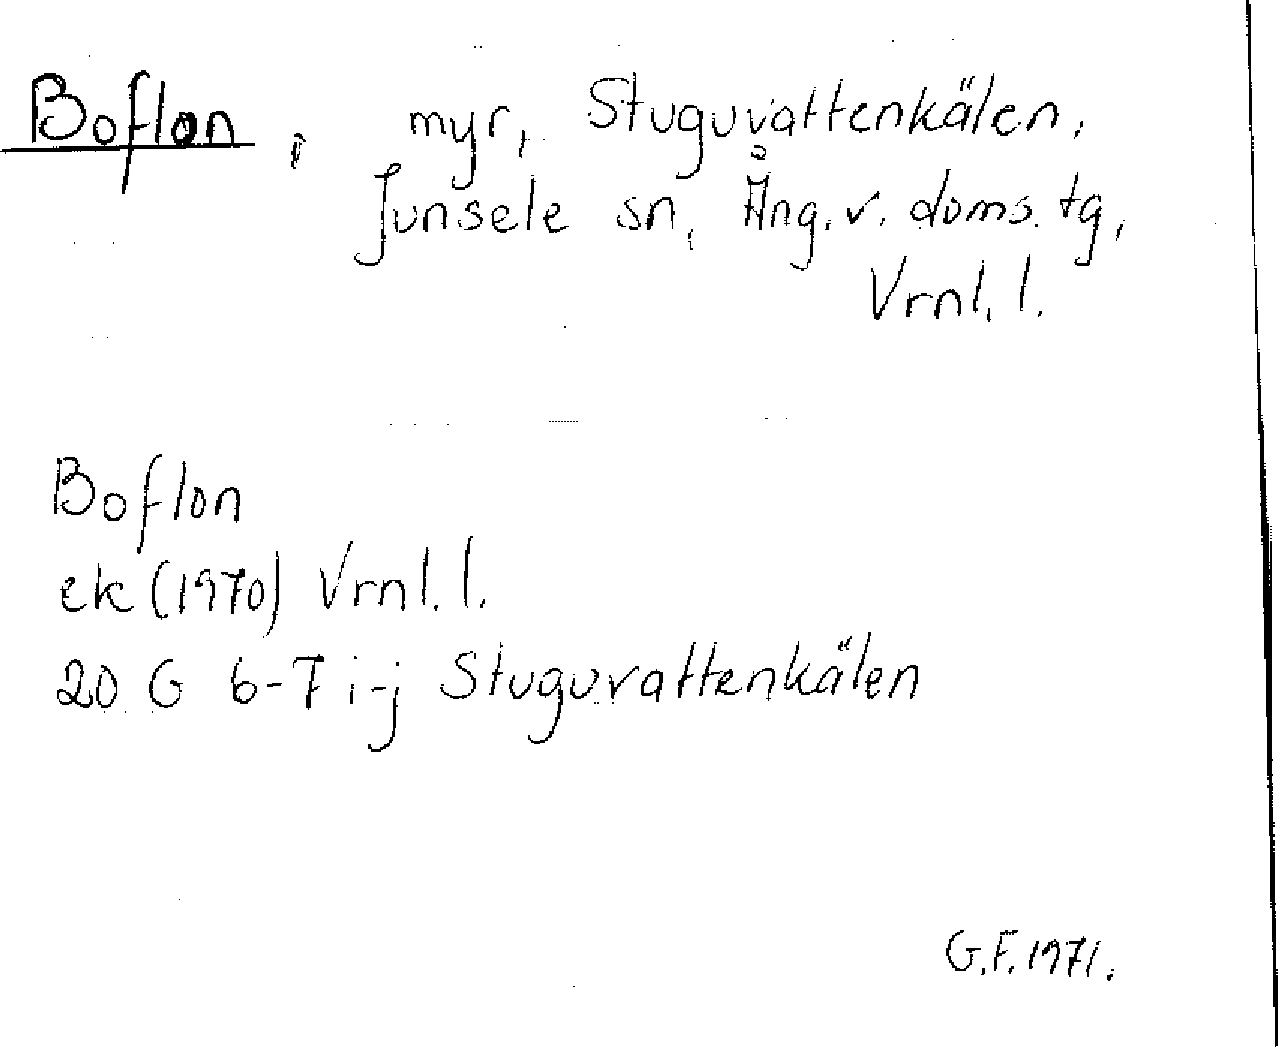 Boflon, myr, Stuguvattenkälen,
Junsele sn, Ång. v. doms. tg,
Vrnl. l.
Boflon
ek (1970) Vrnl. l.
20 G 6-7 i-j Stuguvattenkälen
G.F. 1971.